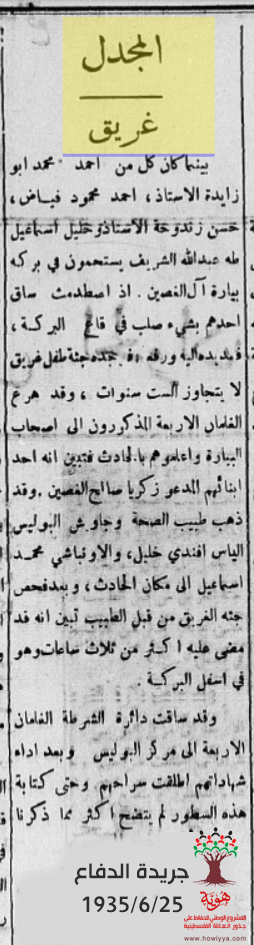 المجدل
غريق
بينما كان كل من احمد محمد ابو
زايدة الاستاذ، احمد محمود فياض،
حسن زندوحة الاستاذ وخليل اسماعيل
طه عبدالله الشريف يستحمون في بركه
بيارة آل الغصين. اذ اصطدمت ساق
احدهم بشيء صلب في قاع البركة،
فمد يده اليه ورفعه جثة طفل غريق
لا يتجاوز الست سنوات، وقد هرع
الغلمان الاربعة المذكورون الى اصحاب
البيارة واعلموهم بالحادث فتبين انه احد
ابنائهم المدعو زكريا صالح الغصين. وقد
ذهب طبيب الصحة وجاويش البوليس
الياس افندي خليل، والاونباشي محمد
اسماعيل الى مكان الحادث، وبعد فحص
جثه الغريق من قبل الطبيب تبين انه قد
مضى عليه اكثر من ثلاث ساعات وهو
في اسفل البركة.
وقد ساقت دائرة الشرطة الغلمان
الاربعة الى مركز البوليس وبعد اداء
شهاداتهم اطلقت سراحهم وحتى كتابة
هذه السطور لم يتضح اكثر مما ذكرنا
جريدة الدفاع
1935/6/25
هوية
المشروع الوطني للحفاظ على
جذور العائلة الفلسطينية
www.howiyya.com